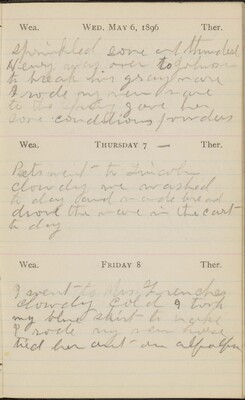 Wea. WED. MAY 6, 1896 Ther.
sprinkled some and thundered
Henry was over to
to break his gray mare
I rode my new mare
to the gave her
some conditions powders
Wea. THURSDAY 7 Ther.
Pete went to Lincoln
cloudy we washed
to day and made bread
drove the mare in the cart
to day
Wea. FRIDAY 8 Ther.
I went to Mrs Frenches
cloudy cold I took
my blue skirt to make
I rode my new horse
tied her out on alfalfa